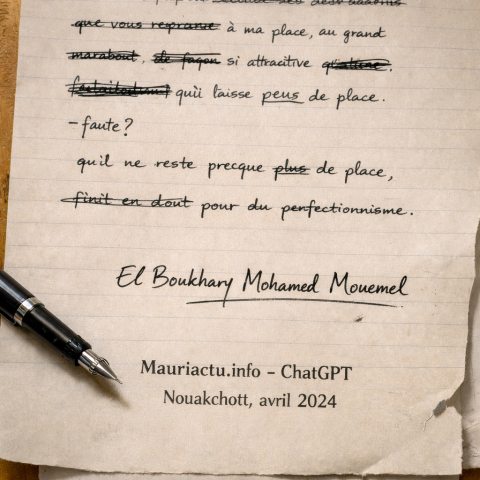 que vous repranne à ma place, au grand
marabout, de façon si attracitive
quii laisse peus de place.
- faute?
quil ne reste precque plus de place,
finit en dout pour du perfectionnisme.
El Boukhary Mohamed Mouemel
Mauriactu.info – ChatGPT
Nouakchott, avril 2024